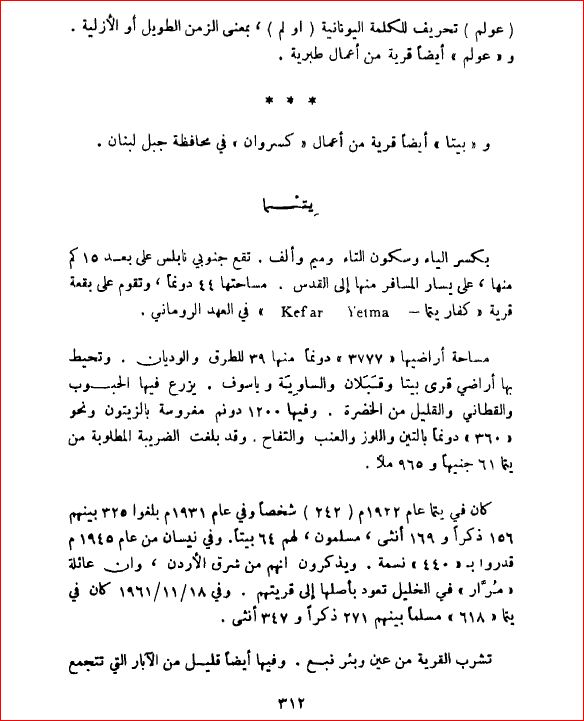 ( عولم ) تحريف للكلمة اليونانية ( او لم ) ، بمعنى الزمن الطويل أو الأزلية .
و « عولم » أيضاً قرية من أعمال طبرية .
* * *
و « بيتا » أيضاً قرية من أعمال « كسروان » في محافظة جبل لبنان .
يِتْما
بكسر الياء وسكون التاء وميم وألف . تقع جنوبي نابلس على بعد ١٥ كم
منها ، على يسار المسافر منها إلى القدس . مساحتها ٤٤ دونماً ، وتقوم على بقعة
قرية « كفار يتما – Kefar Yetma » في العهد الروماني .
مساحة أراضيها « ٣٧٧٧ » دونماً منها ٣٩ للطرق والوديان . وتحيط
بها أراضي قرى بيتا وقبلان والساوية وياسوف . يزرع فيها الحبوب
والقطاني والقليل من الخضرة . وفيها ١٢٠٠ دونم مغروسة بالزيتون ونحو
« ٣٦٠ » دونماً بالتين واللوز والعنب والتفاح . وقد بلغت الضريبة المطلوبة من
يتما ٦١ جنيهاً و ٩٦٥ ملاً .
كان في يتما عام ١٩٢٢م ( ٢٤٢ ) شخصاً وفي عام ١٩٣١م بلغوا ٣٢٥ بينهم
١٥٦ ذكراً و ١٦٩ أنثى ، مسلمون ، لهم ٦٤ بيتاً . وفي نيسان من عام ١٩٤٥ م
قدروا بـ « ٤٤٠ » نسمة . ويذكرون انهم من شرق الأردن ، وان عائلة
« مُرَّار » في الخليل تعود بأصلها إلى قريتهم . وفي ١٩٦١/١١/١٨ كان في
يتما « ٦١٨ » مسلماً بينهم ٢٧١ ذكراً و ٣٤٧ أنثى .
تشرب القرية من عين وبئر نبع . وفيها أيضاً قليل من الآبار التي تتجمع
٣١٢